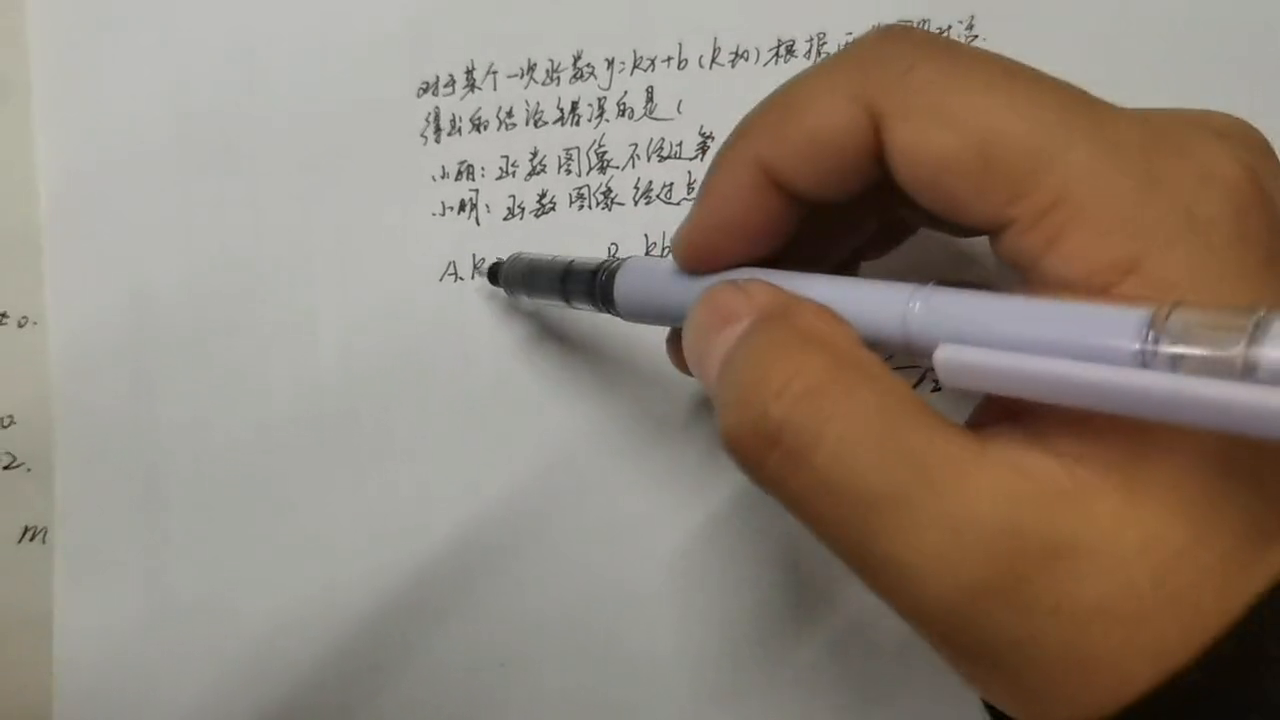 对于某个一次函数y=kx+b(k≠0)根据两
得出的结论错误的是(
小丽:函数图像不经过第
小明:函数图像经过点
A.k
B. kb
±0.
0.
2.
m